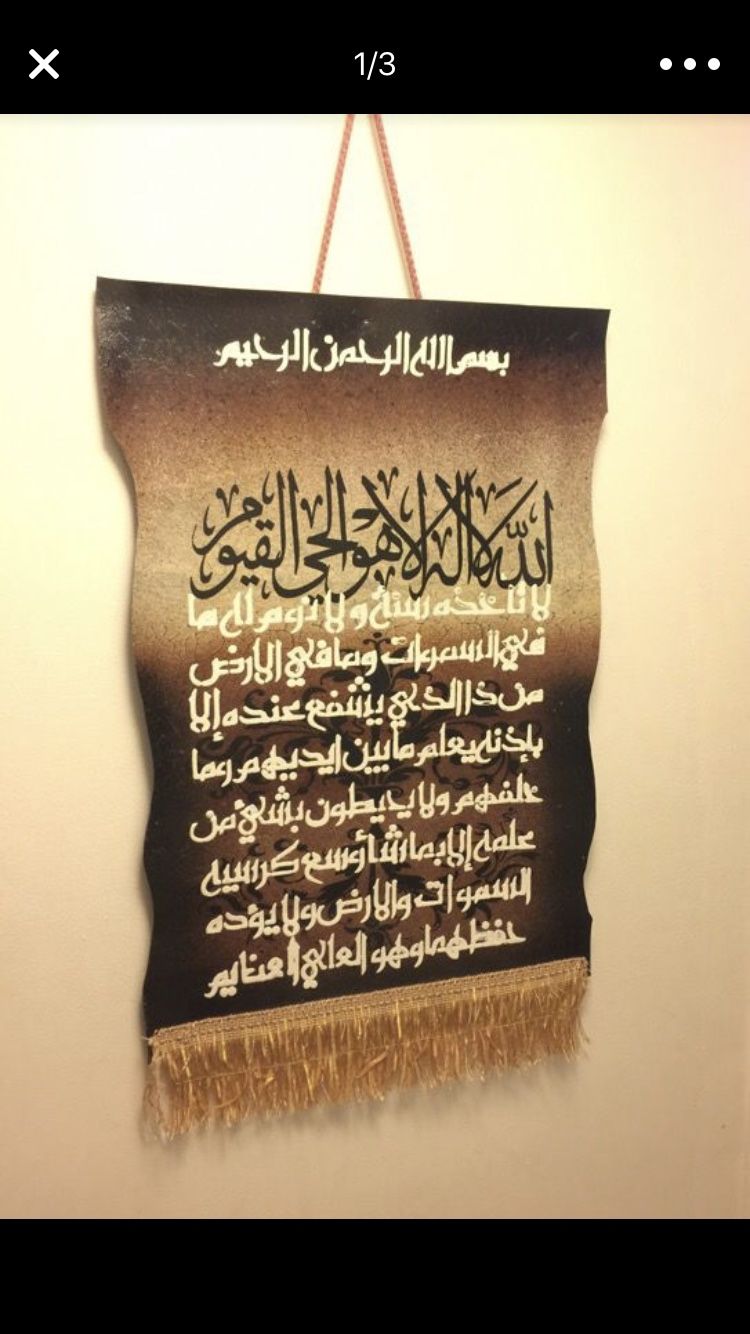 1/3
بسم الله الرحمن الرحيم
الله لا إله إلا هو الحي القيوم
لا تأخذه سنة ولا نوم له ما
في السموات وما في الارض
من ذا الذي يشفع عنده إلا
بإذنه يعلم ما بين ايديهم وما
خلفهم ولا يحيطون بشيء من
علمه إلا بما شاء وسع كرسيه
السموات والارض ولا يؤده
حفظهما وهو العلي العظيم